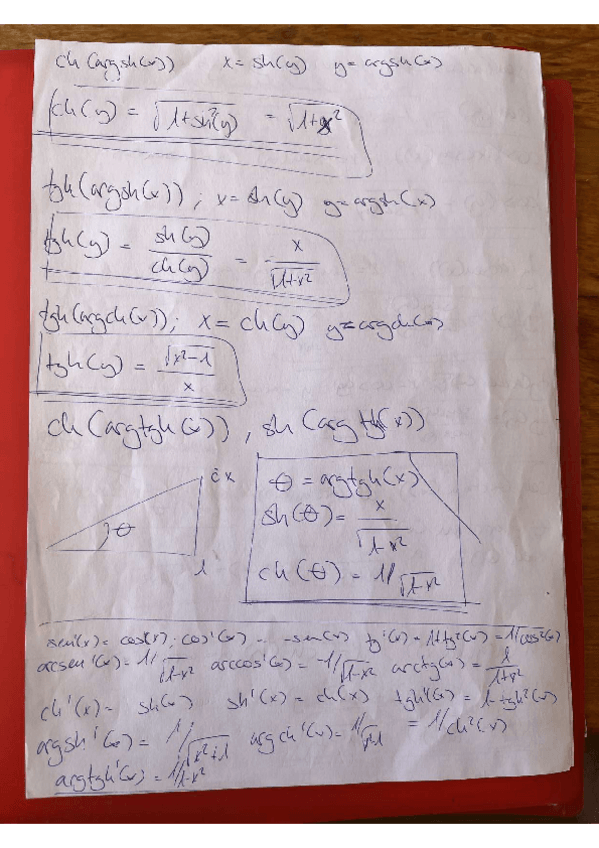 ch(argsh(x)) x = sh(y) y = argsh(x)
ch(y) = √(1+sh²(y)) = √(1+x²)
tgh(argsh(x)); x = sh(y) y = argsh(x)
tgh(y) = sh(y)/ch(y) = x/√(1+x²)
tgh(argch(x)); x = ch(y) y = argch(x)
tgh(y) = √(x²-1)/x
ch(argtgh(x)), sh(argtgh(x))
θ = argtgh(x)
sh(θ) = x/√(1-x²)
ch(θ) = 1/√(1-x²)
θ
x
1
sen'(x) = cos(x); cos'(x) = -sen(x) tg'(x) = 1+tg²(x) = 1/cos²(x)
arcsen'(x) = 1/√(1-x²) arccos'(x) = -1/√(1-x²) arctg(x) = 1/(1+x²)
ch'(x) = sh(x) sh'(x) = ch(x) tgh'(x) = 1-tgh²(x)
argsh'(x) = 1/√(x²+1) argch'(x) = = 1/ch²(x)
argtgh'(x) = 1/1-x²